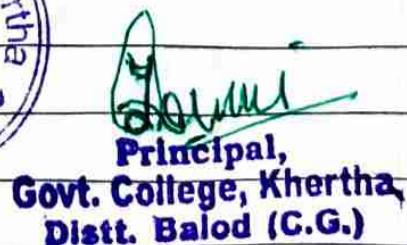 rtha
Principal,
Govt. College, Khertha
Distt. Balod (C.G.)